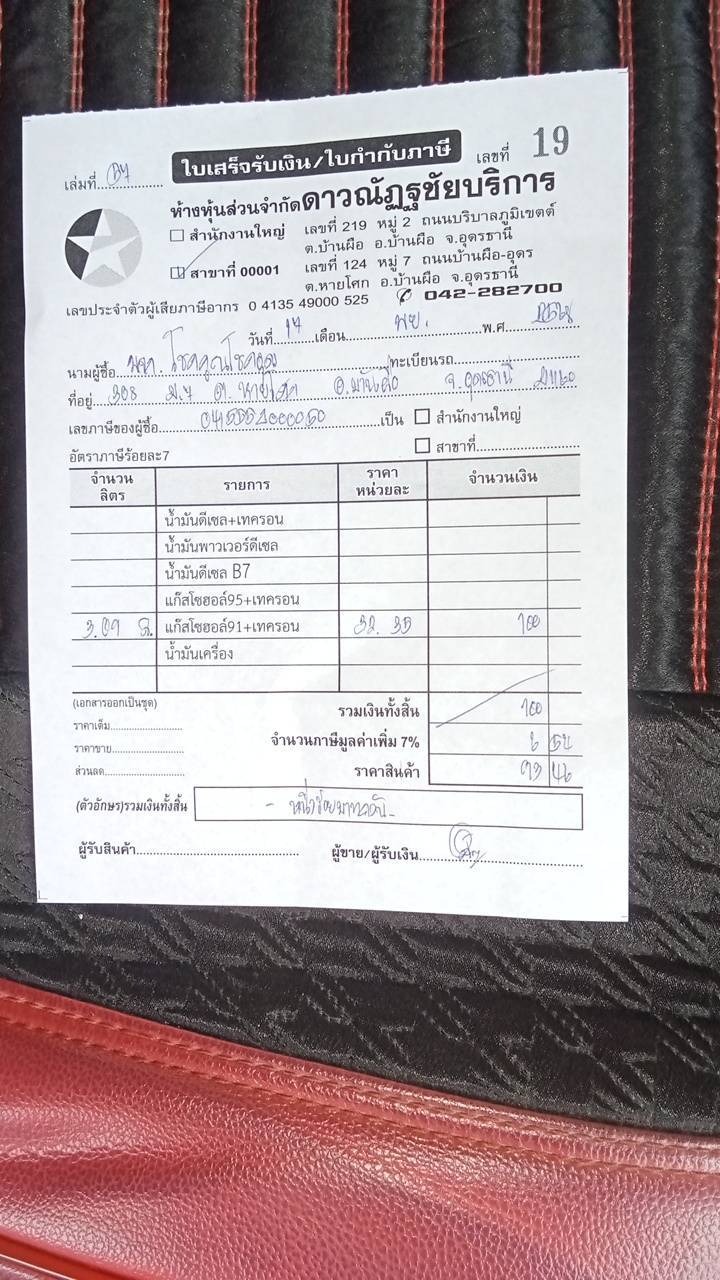 ใบเสร็จรับเงิน/ใบกำกับภาษี
เล่มที่........... เลขที่ 19
ห้างหุ้นส่วนจำกัดดาวณัฏฐชัยบริการ
☐ สำนักงานใหญ่ เลขที่ 219 หมู่ 2 ถนนบริบาลภูมิเขตต์
ต.บ้านผือ อ.บ้านผือ จ.อุดรธานี
☑ สาขาที่ 00001 เลขที่ 124 หมู่ 7 ถนนบ้านผือ-อุดร
ต.หายโศก อ.บ้านผือ จ.อุดรธานี
เลขประจำตัวผู้เสียภาษีอากร 0 4135 49000 525 ✆ 042-282700
วันที่ 17 เดือน พย. พ.ศ 2568
นามผู้ซื้อ หจก. โชคคูณโชคคูณ ทะเบียนรถ
ที่อยู่ 308 ม.7 ต. หายโศก อ.บ้านผือ จ.อุดรธานี 41160
เลขภาษีของผู้ซื้อ เป็น ☐ สำนักงานใหญ่
☐ สาขาที่
อัตราภาษีร้อยละ7
จำนวนลิตร รายการ ราคาหน่วยละ จำนวนเงิน
น้ำมันดีเซล+เทครอน
น้ำมันพาวเวอร์ดีเซล
น้ำมันดีเซล B7
แก๊สโซฮอล์95+เทครอน
3.09 ล. แก๊สโซฮอล์91+เทครอน 32.35 100
น้ำมันเครื่อง
(เอกสารออกเป็นชุด) รวมเงินทั้งสิ้น 100
ราคาเต็ม
จำนวนภาษีมูลค่าเพิ่ม 7% 6 54
ราคาขาย
ส่วนลด ราคาสินค้า 93 46
(ตัวอักษร)รวมเงินทั้งสิ้น - หนึ่งร้อยบาทถ้วน -
ผู้รับสินค้า ผู้ขาย/ผู้รับเงิน